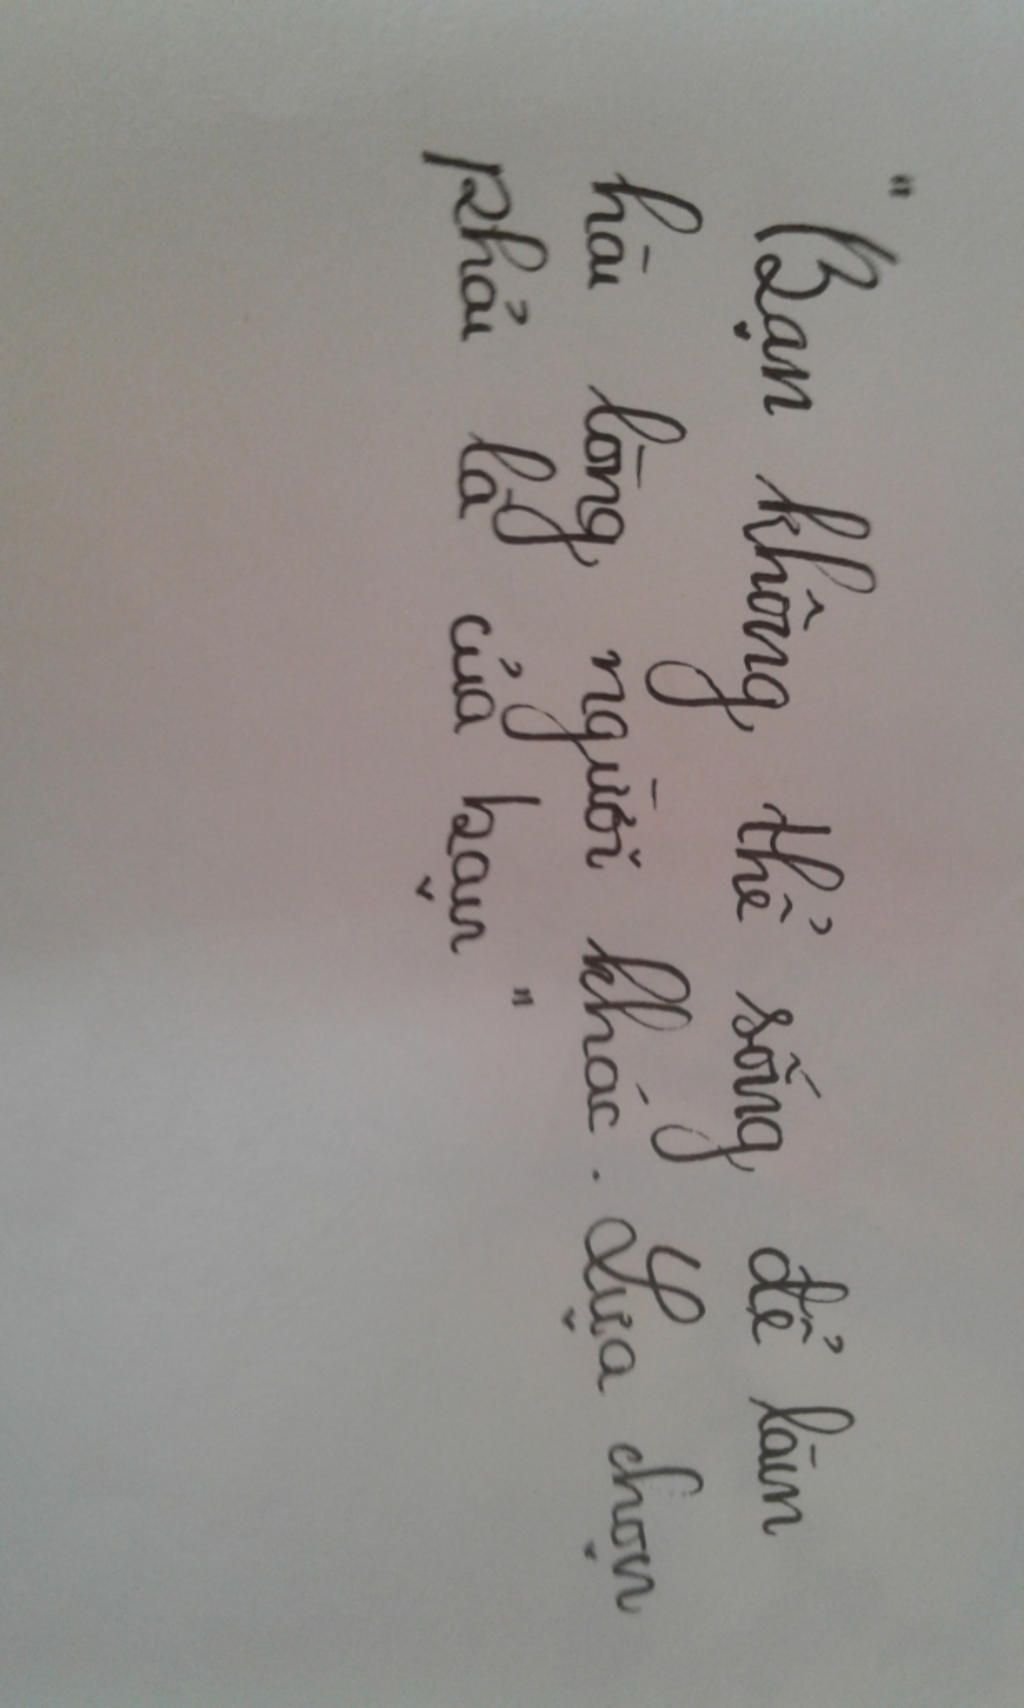 "Bạn không thể sống để làm
hài lòng người khác. Lựa chọn
phải là của bạn"